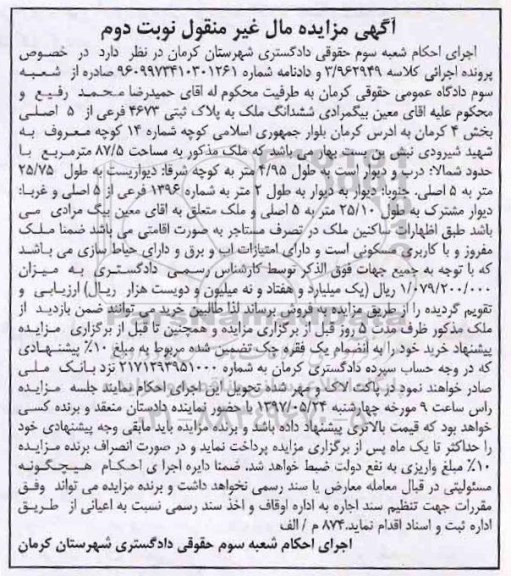 آگهی مزایده مال غیر منقول نوبت دوم
اجرای احکام شعبه سوم حقوقی دادگستری شهرستان کرمان در نظر دارد در خصوص
پرونده اجرائی کلاسه ۳/۹۶۲۹۴۹ و دادنامه شماره ۹۶۰۹۹۷۳۴۱۰۳۰۱۲۶۱ صادره از شعبه
سوم دادگاه عمومی حقوقی کرمان به طرفیت محکوم له اقای حمیدرضا محمد رفیع و
محکوم علیه اقای معین بیگمرادی ششدانگ ملک به پلاک ثبتی ۴۶۷۳ فرعی از ۵ اصلی
بخش ۴ کرمان به ادرس کرمان بلوار جمهوری اسلامی کوچه شماره ۱۴ کوچه معروف به
شهید شیرودی نبش بن بست بهار می باشد که ملک مذکور به مساحت ۸۷/۵ مترمربع با
حدود شمالا: درب و دیوار است به طول ۴/۹۵ متر به کوچه شرقا: دیواریست به طول ۲۵/۷۵
متر به ۵ اصلی. جنوبا: دیوار به دیوار به طول ۲ متر به شماره ۱۳۹۶ فرعی از ۵ اصلی و غربا:
دیوار مشترک به طول ۲۵/۱۰ متر به ۵ اصلی و ملک متعلق به اقای معین بیگ مرادی می
باشد طبق اظهارات ساکنین ملک در تصرف مستاجر به صورت اقامتی می باشد ضمنا ملک
مفروز و با کاربری مسکونی است و دارای امتیازات اب و برق و دارای حیاط سازی می باشد
که با توجه به جمیع جهات فوق الذکر توسط کارشناس رسمی دادگستری به میزان
۱/۰۷۹/۲۰۰/۰۰۰ ریال (یک میلیارد و هفتاد و نه میلیون و دویست هزار ریال) ارزیابی و
تقویم گردیده را از طریق مزایده به فروش برساند لذا طالبین خرید می توانند ضمن بازدید از
ملک مذکور ظرف مدت ۵ روز قبل از برگزاری مزایده و همچنین تا قبل از برگزاری مزایده
پیشنهاد خرید خود را به انضمام یک فقره چک تضمین شده مربوط به مبلغ ۱۰٪ پیشنهادی
که در وجه حساب سپرده دادگستری کرمان به شماره ۲۱۷۱۲۹۳۹۵۱۰۰۰ نزد بانک ملی
صادر خواهند نمود در پاکت لاک و مهر شده تحویل این اجرای احکام نمایند جلسه مزایده
راس ساعت ۹ مورخه چهارشنبه ۱۳۹۷/۰۵/۲۴ با حضور نماینده دادستان منعقد و برنده کسی
خواهد بود که قیمت بالاتری پیشنهاد داده باشد. برنده مزایده باید مابقی وجه پیشنهادی خود
را حداکثر تا یک ماه پس از برگزاری مزایده پرداخت نماید و در صورت انصراف برنده مزایده
۱۰٪ مبلغ واریزی به نفع دولت ضبط خواهد شد. ضمنا دایره اجرا ی احکام هیچگونه
مسئولیتی در قبال معامله معارض یا سند رسمی نخواهد داشت و برنده مزایده می تواند وفق
مقررات جهت تنظیم سند اجاره به اداره اوقاف و اخذ سند رسمی نسبت به اعیانی از طریق
اداره ثبت و اسناد اقدام نماید.۸۷۴ م / الف
اجرای احکام شعبه سوم حقوقی دادگستری شهرستان کرمان